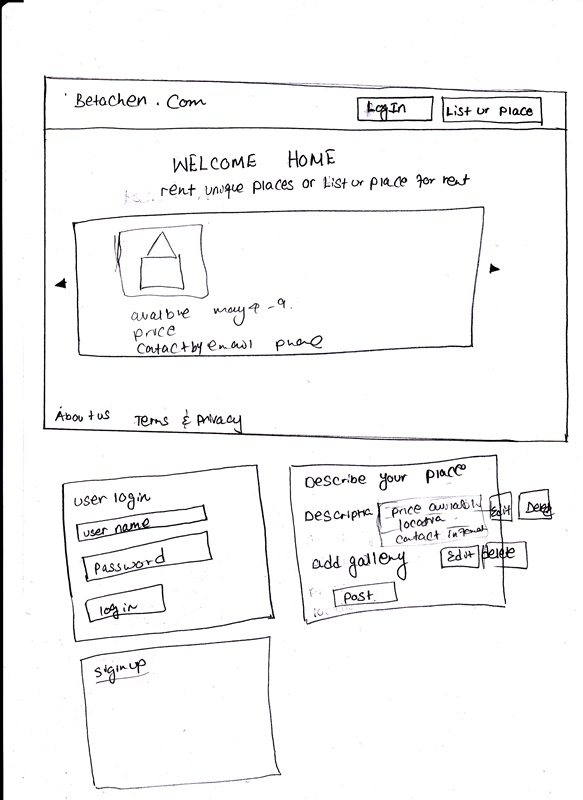 Betachen.Com
Log In
List ur place
WELCOME HOME
rent unique places or List ur place for rent
may 4-9.
price
contact by email phone
About us
Terms & Privacy
user login
user name
password
login
Describe your place
price
contact
Edit
add gallery
Edit
Delete
Post
signup